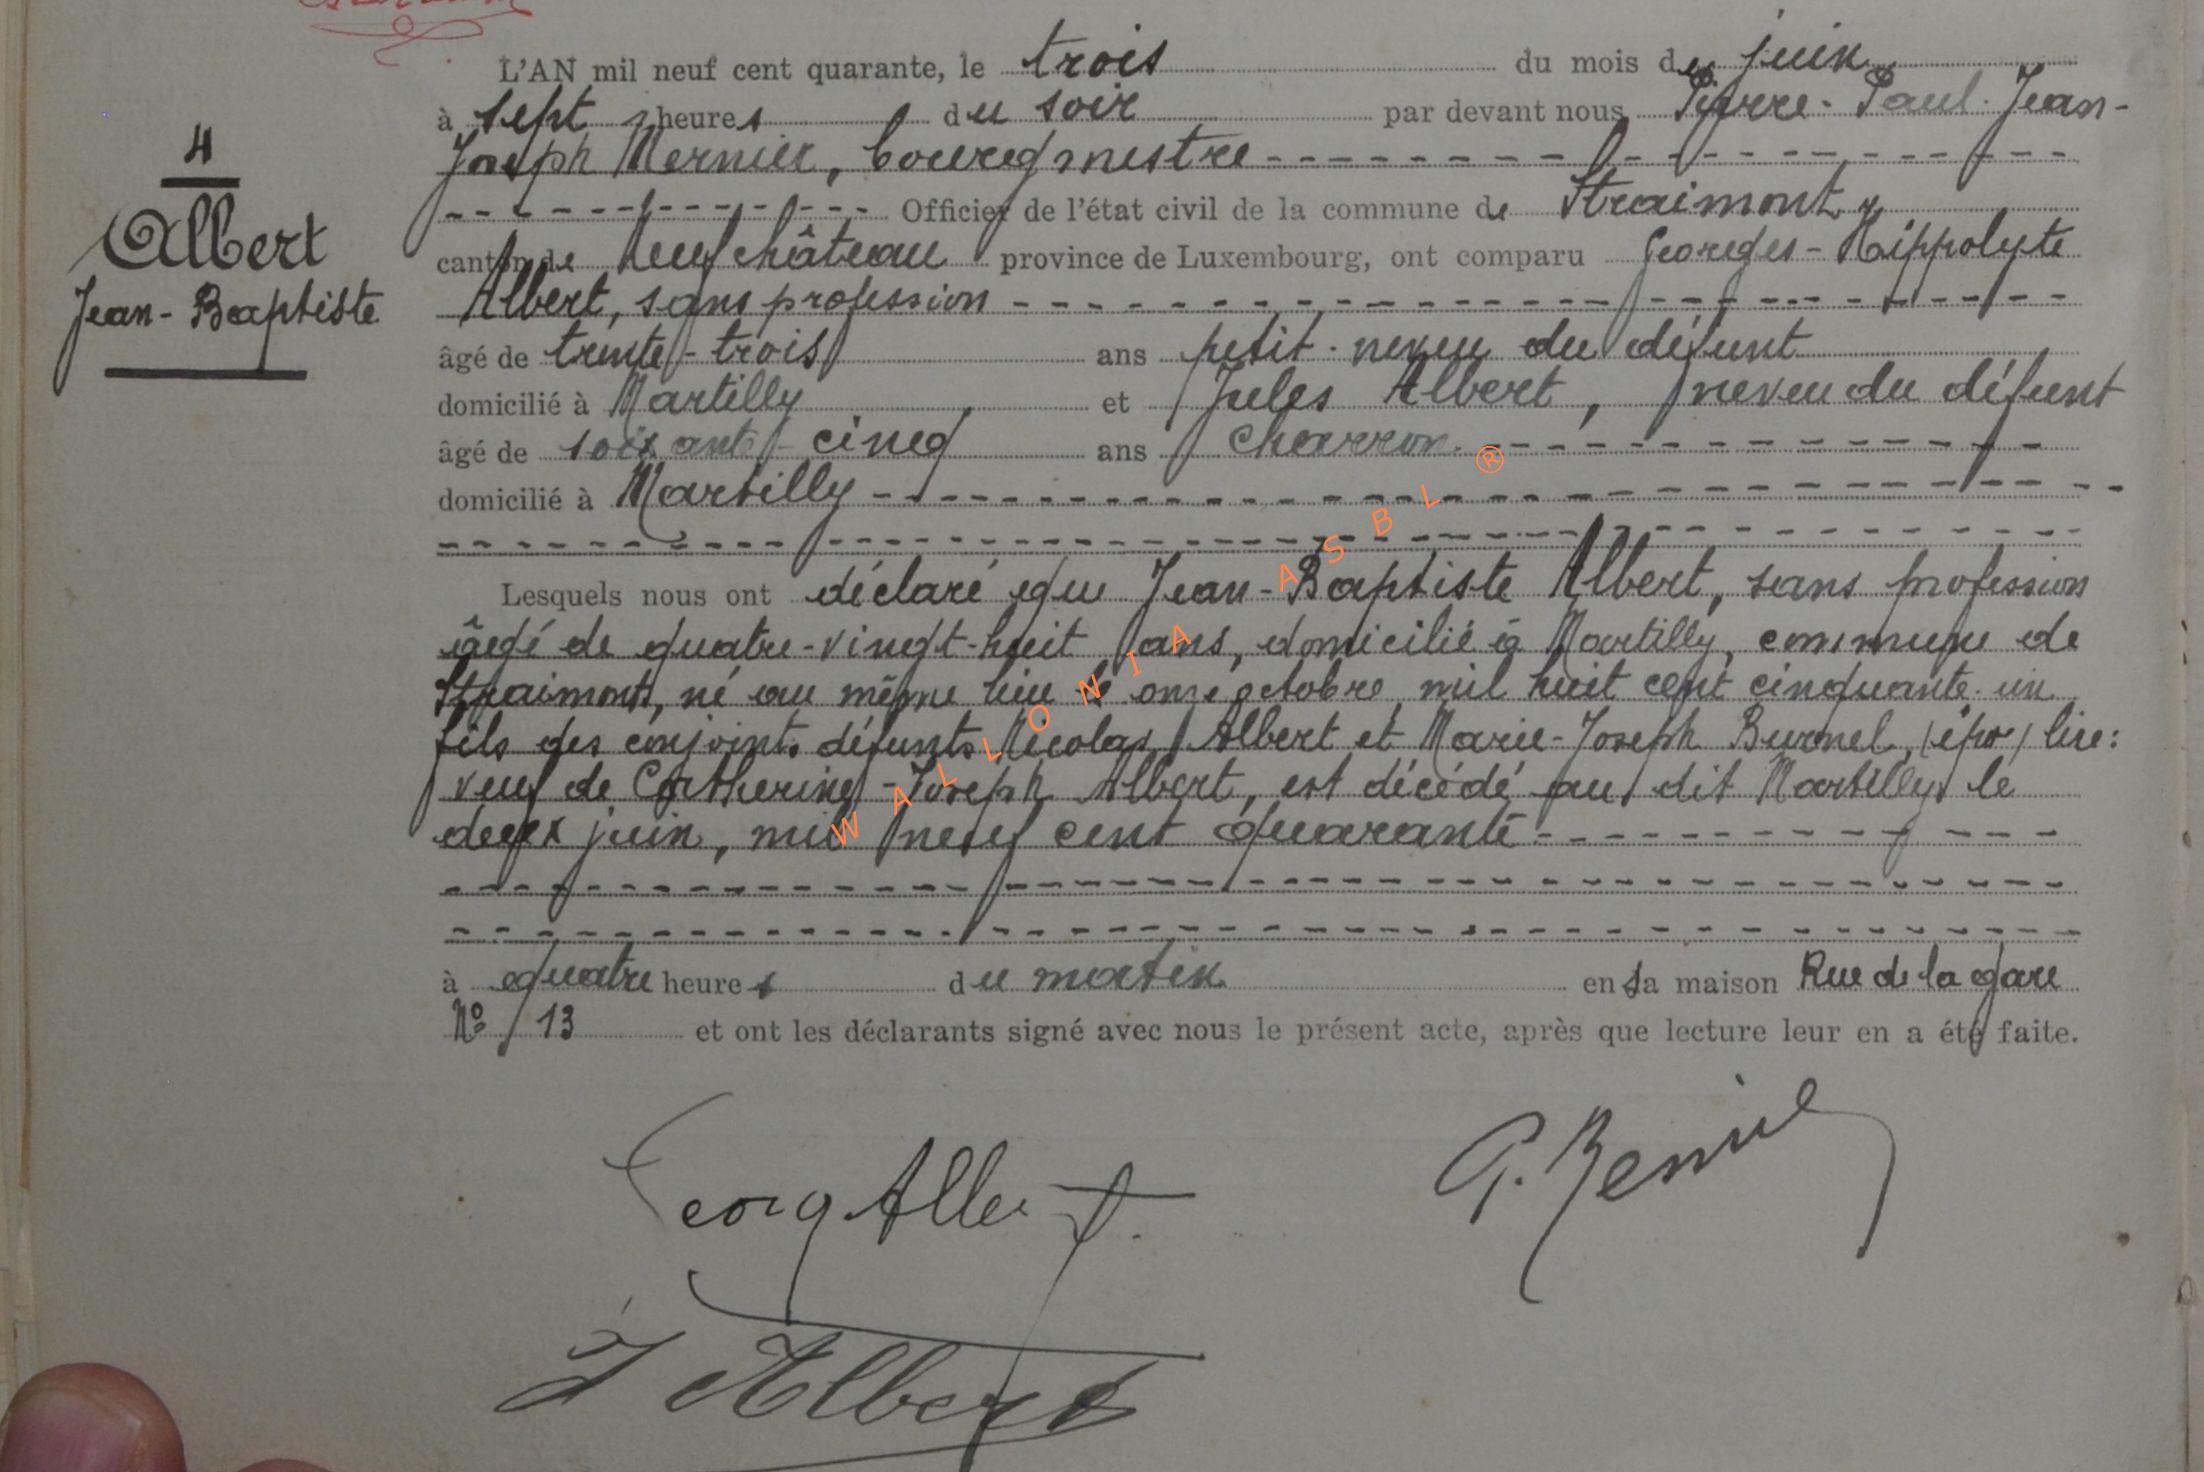 4
Albert
Jean-Baptiste
L'AN mil neuf cent quarante, le trois du mois de juin
à sept heures du soir par devant nous Pierre-Paul-Jean-
Joseph Mernier, bourgmestre
Officier de l'état civil de la commune de Straimont,
canton de Neufchâteau province de Luxembourg, ont comparu Georges-Hippolyte
Albert, sans profession
âgé de trente-trois ans petit-neveu du défunt
domicilié à Martilly et Jules Albert, neveu du défunt
âgé de soixante-cinq ans charron.
domicilié à Martilly
Lesquels nous ont déclaré que Jean-Baptiste Albert, sans profession
âgé de quatre-vingt-huit ans, domicilié à Martilly, commune de
Straimont, né au même lieu le onze octobre mil huit cent cinquante-un
fils des conjoints défunts Nicolas Albert et Marie-Joseph Burnel, (épo) lire:
veuf de Catherine-Joseph Albert, est décédé au dit Martilly le
deux juin, mil neuf cent quarante
à quatre heures du matin en sa maison Rue de la gare
N° 13 et ont les déclarants signé avec nous le présent acte, après que lecture leur en a été faite.
Georg Albert.
J Albert
WALLONIA ASBL ®